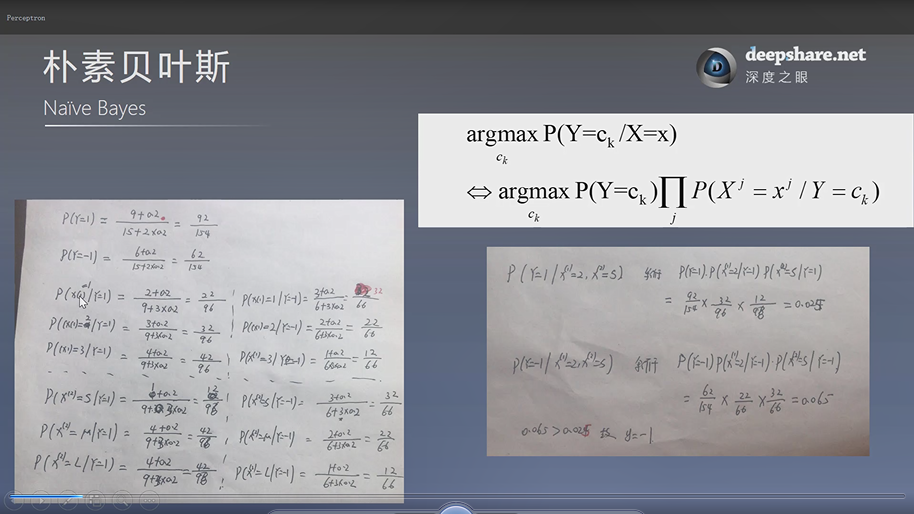 Perceptron
朴素贝叶斯
Naïve Bayes
deepshare.net
深度之眼
argmax P(Y=ck/X=x)
ck
⇔ argmax P(Y=ck)∏ P(X^j = x^j / Y = ck)
ck j
P(Y=1) = 9+0.2 / 15+2×0.2 = 92/154
P(Y=-1) = 6+0.2 / 15+2×0.2 = 62/154
/Y=1) = 2+0.2 / 9+3×0.2 = 22/96
=1/Y=-1) = 3+0.2 / 6+3×0.2 = 32/66
/Y=1) = 3+0.2 / 9+3×0.2 = 32/96
=2/Y=-1) = 2+0.2 / 6+3×0.2 = 22/66
=3/Y=1) = 4+0.2 / 9+3×0.2 = 42/96
=3/Y=-1) = 1+0.2 / 6+3×0.2 = 12/66
P(X^(2)=S/Y=1) =
=S/Y=-1) = 3+0.2 / 6+3×0.2 = 32/66
P(X^(2)=μ/Y=1) = 4+0.2
=μ/Y=-1) = 2+0.2 / 6+3×0.2 = 22/66
P(X^(2)=L/Y=1) = 4+0.2
=L/Y=-1) = 1+0.2 / 6+3×0.2 = 12/66
P(Y=1/X^(1)=2, X^(2)=S) P(Y=1)·P(X^(1)=2/Y=1)P(X^(2)=S/Y=1)
= 92/154 × 32/96 ×
P(Y=-1/X^(1)=2, X^(2)=S) P(Y=-1)P(X^(1)=2/Y=-1)·P(X^(2)=S/Y=-1)
= 62/154 × 22/66 × 32/66 = 0.065
0.065 > y=-1